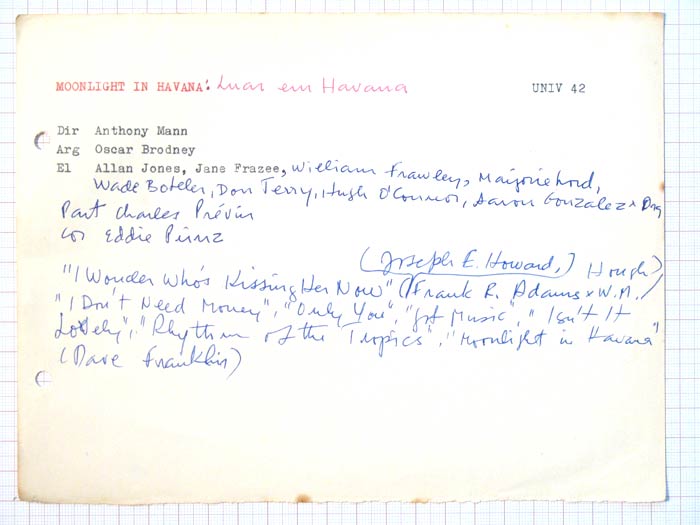 MOONLIGHT IN HAVANA: Luar em Havana UNIV 42
Dir Anthony Mann
Arg Oscar Brodney
El Allan Jones, Jane Frazee, William Frawley, Marjorie Lord,
Wade Boteler, Don Terry, Hugh O'Connor, Aaron Gonzalez x Orq
Part Charles Prévin
cor Eddie Prinz
(Joseph E. Howard,) Hough)
"I Wonder Who's Kissing Her Now" (/Frank R. Adams x W.M./
"I Don't Need Money", "Only You", "Got Music", "Isn't It
Lovely", "Rhythm of the Tropics", "Moonlight in Havana"
(Dave Franklin)